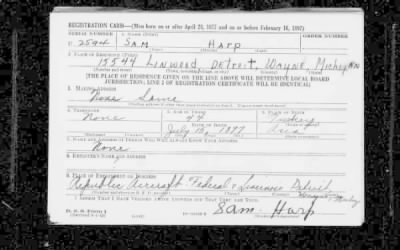 REGISTRATION CARD—(Men born on or after April 28, 1877 and on or before February 16, 1897)
SERIAL NUMBER 1. NAME (Print) ORDER NUMBER
U 2594 SAM HARP
2. PLACE OF RESIDENCE (Print)
15544 LINWOOD, DETROIT, WAYNE, MICHIGAN
[THE PLACE OF RESIDENCE GIVEN ON THE LINE ABOVE WILL DETERMINE LOCAL BOARD
JURISDICTION; LINE 2 OF REGISTRATION CERTIFICATE WILL BE IDENTICAL]
3. MAILING ADDRESS
Same
4. TELEPHONE 5. AGE IN YEARS 6. PLACE OF BIRTH
None 44 Turkey
DATE OF BIRTH
July 1897 Asia
7. NAME AND ADDRESS OF PERSON WHO WILL ALWAYS KNOW YOUR ADDRESS
None
8. EMPLOYER'S NAME AND ADDRESS
9. PLACE OF EMPLOYMENT OR BUSINESS
Republic Aircraft Federal & Detroit
I AFFIRM THAT I HAVE VERIFIED ABOVE ANSWERS AND THAT THEY ARE TRUE.
D. S. S. Form 1
Sam Harp